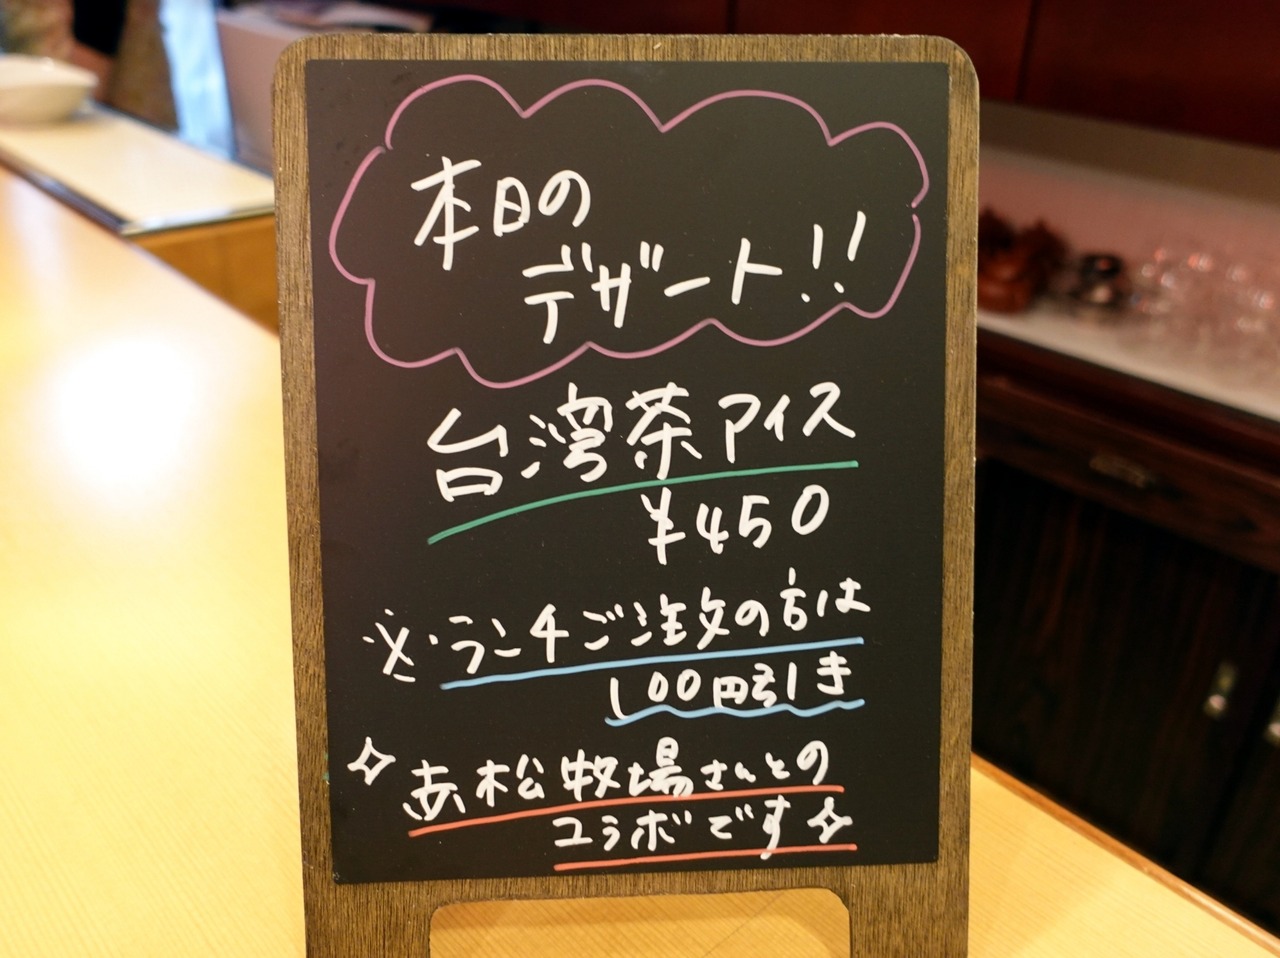 本日の
デザート!!
台湾茶アイス
¥450
※ランチご注文の方は
100円引き
赤松牧場さんとの
コラボです